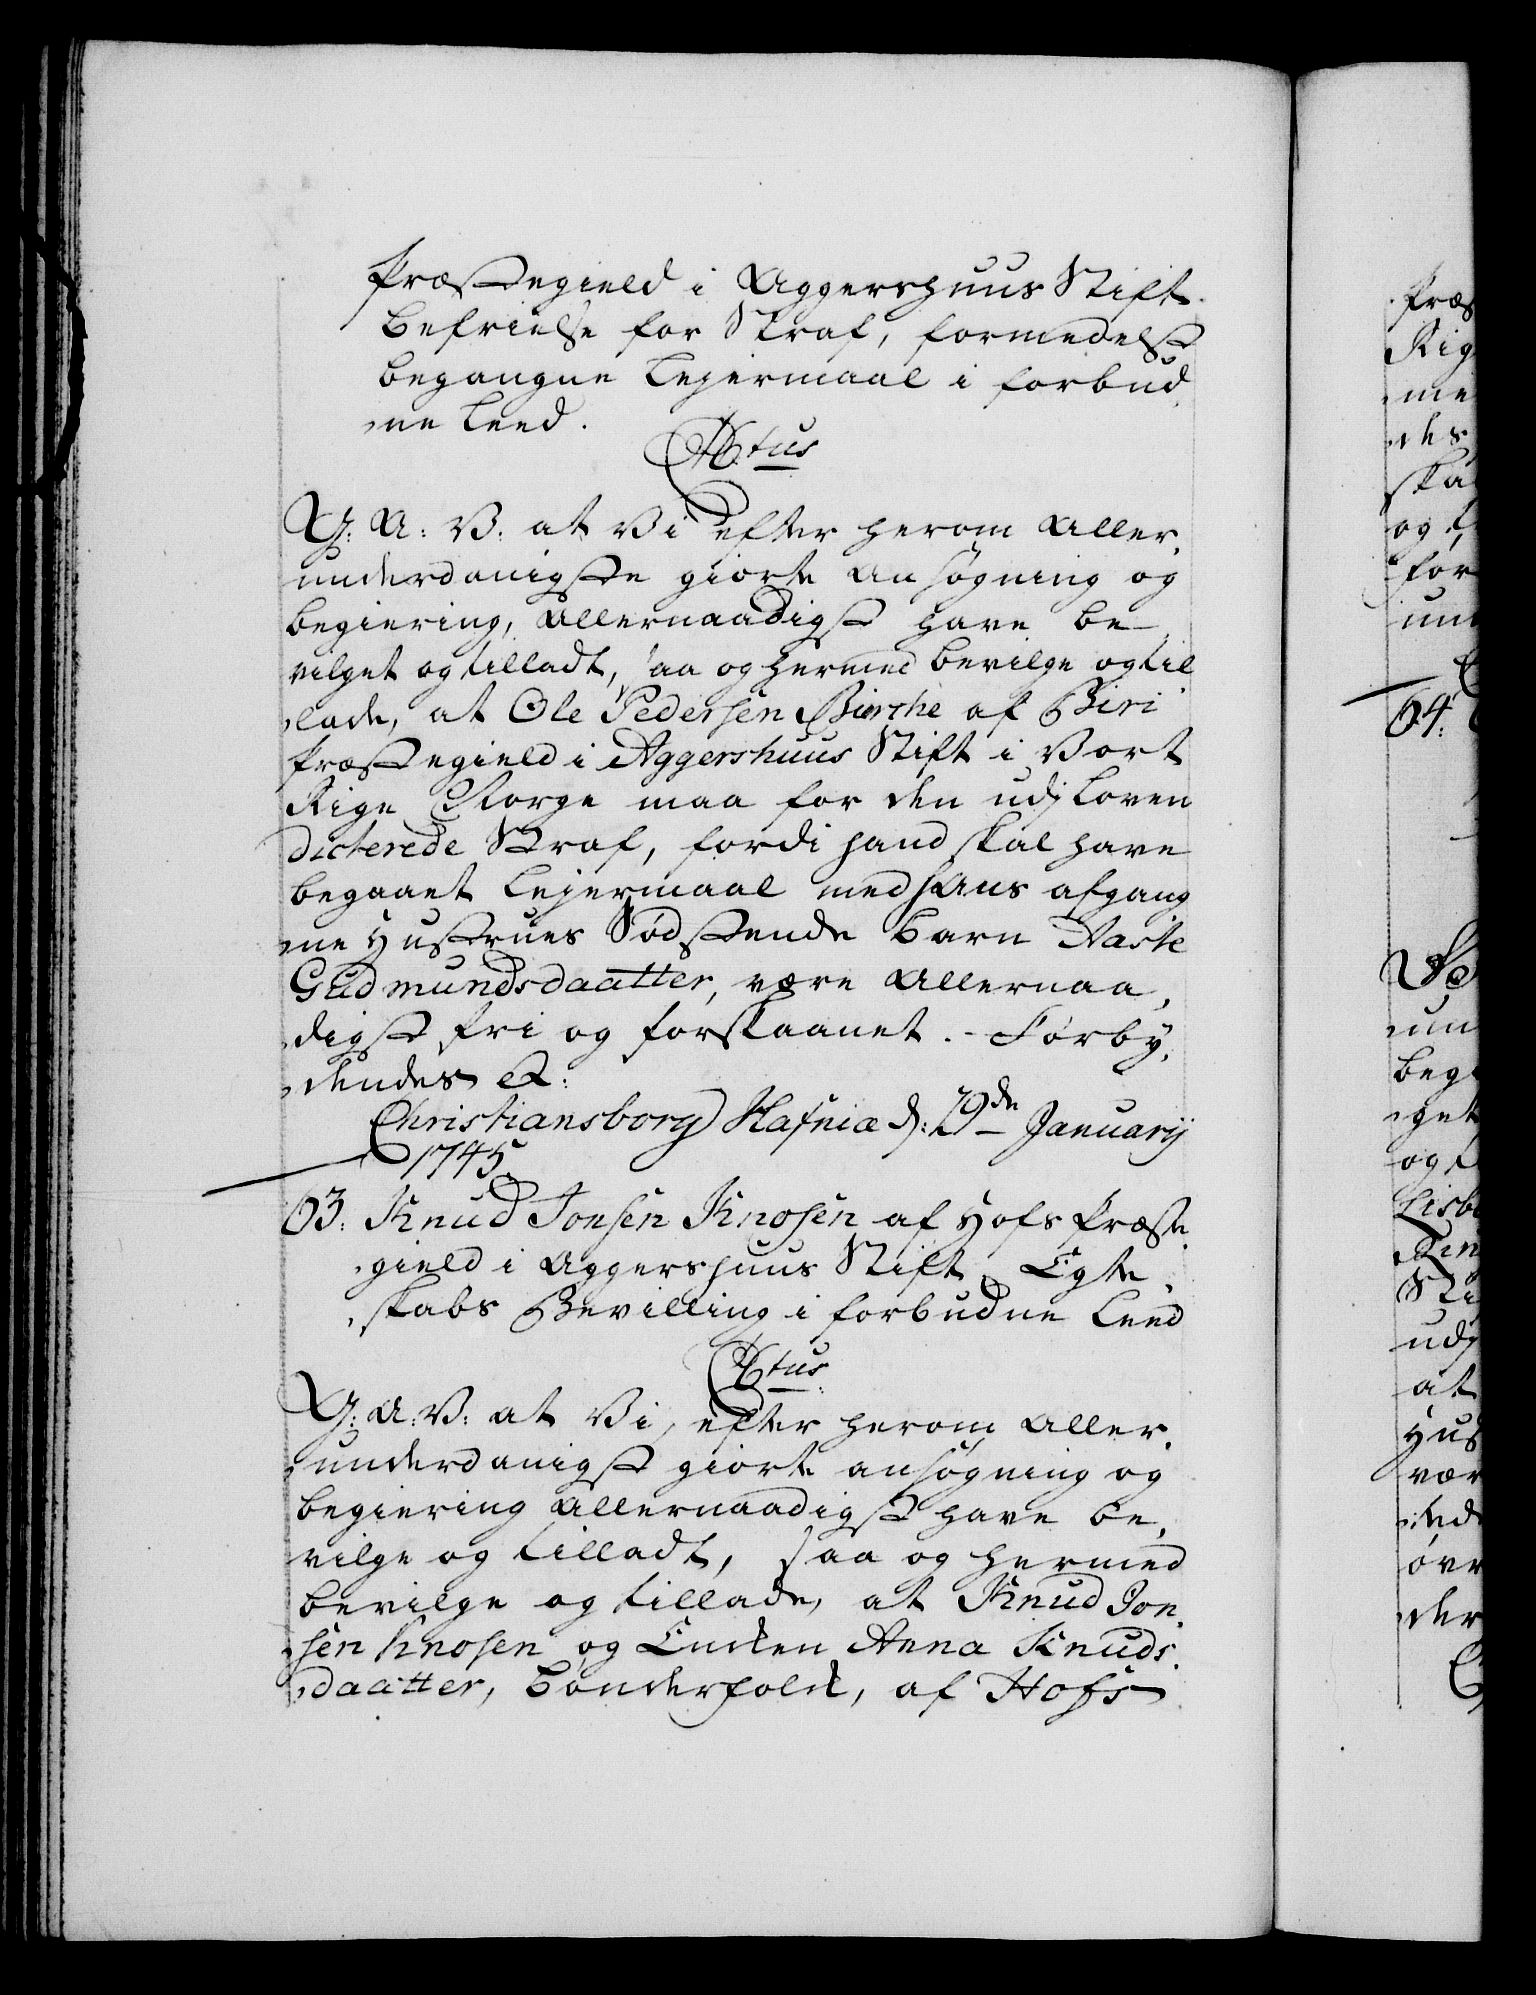 Præstegield i Aggershuus Stift
befrielse for Straf, formedelst
begangne Lejermaal i forbud
ne Leed.
C6.tus
G: A: V: at Vi efter herom Aller
underdanigste giorte Ansøgning og
begiering, Allernaadigst have be-
vilget og tilladt, saa og hermed bevilge og til
lade, at Ole Pedersen Birche af Biri
Præstegield i Aggershuus Stift i Vort
Rige Norge maa for den udj Loven
dicterede Straf, fordi hand skal have
begaaet Lejermaal med hans afgang
ne Hustrues Sødskende barn Aaste
Gudmundsdaatter, være Allernaa
digst fri og forskaanet. - Forby
dendes &:
Christiansborg Hafniæ d: 29de Januarij
1745.
63: Knud Jonsen Knosen af Hofs Præste
gield i Aggershuus Stift, Egte
skabs Bevilling i forbudne Leed
C6tus
G: A: V: at Vi, efter herom Aller
underdanigst giorte ansøgning og
begiering Allernaadigst have be
vilge og tilladt, saa og hermed
bevilge og tillade, at Knud Jon
sen Knosen og Encken Anna Knuds
daatter, bønderfolck, af Hofs
Præs
Rig
me
des
ska
og
for
un
64:
un
beg
get
og
Lisb
Rin
Sti
udj
at
Hus
vær
ded
øvr
der